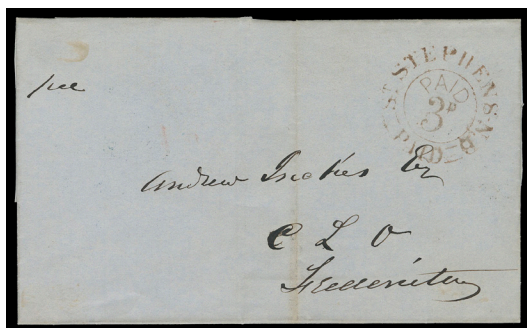 ST STEPHENS N.B.
PAID
3D
PAID
Andrew Inches Esq
C L O
Fredericton